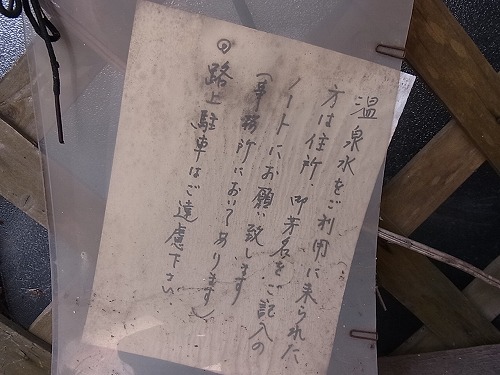 温泉水をご利用に来られた
方は住所・御芳名をご記入の
ノートにお願い致します
(事務所においてあります)
◎路上駐車はご遠慮下さい